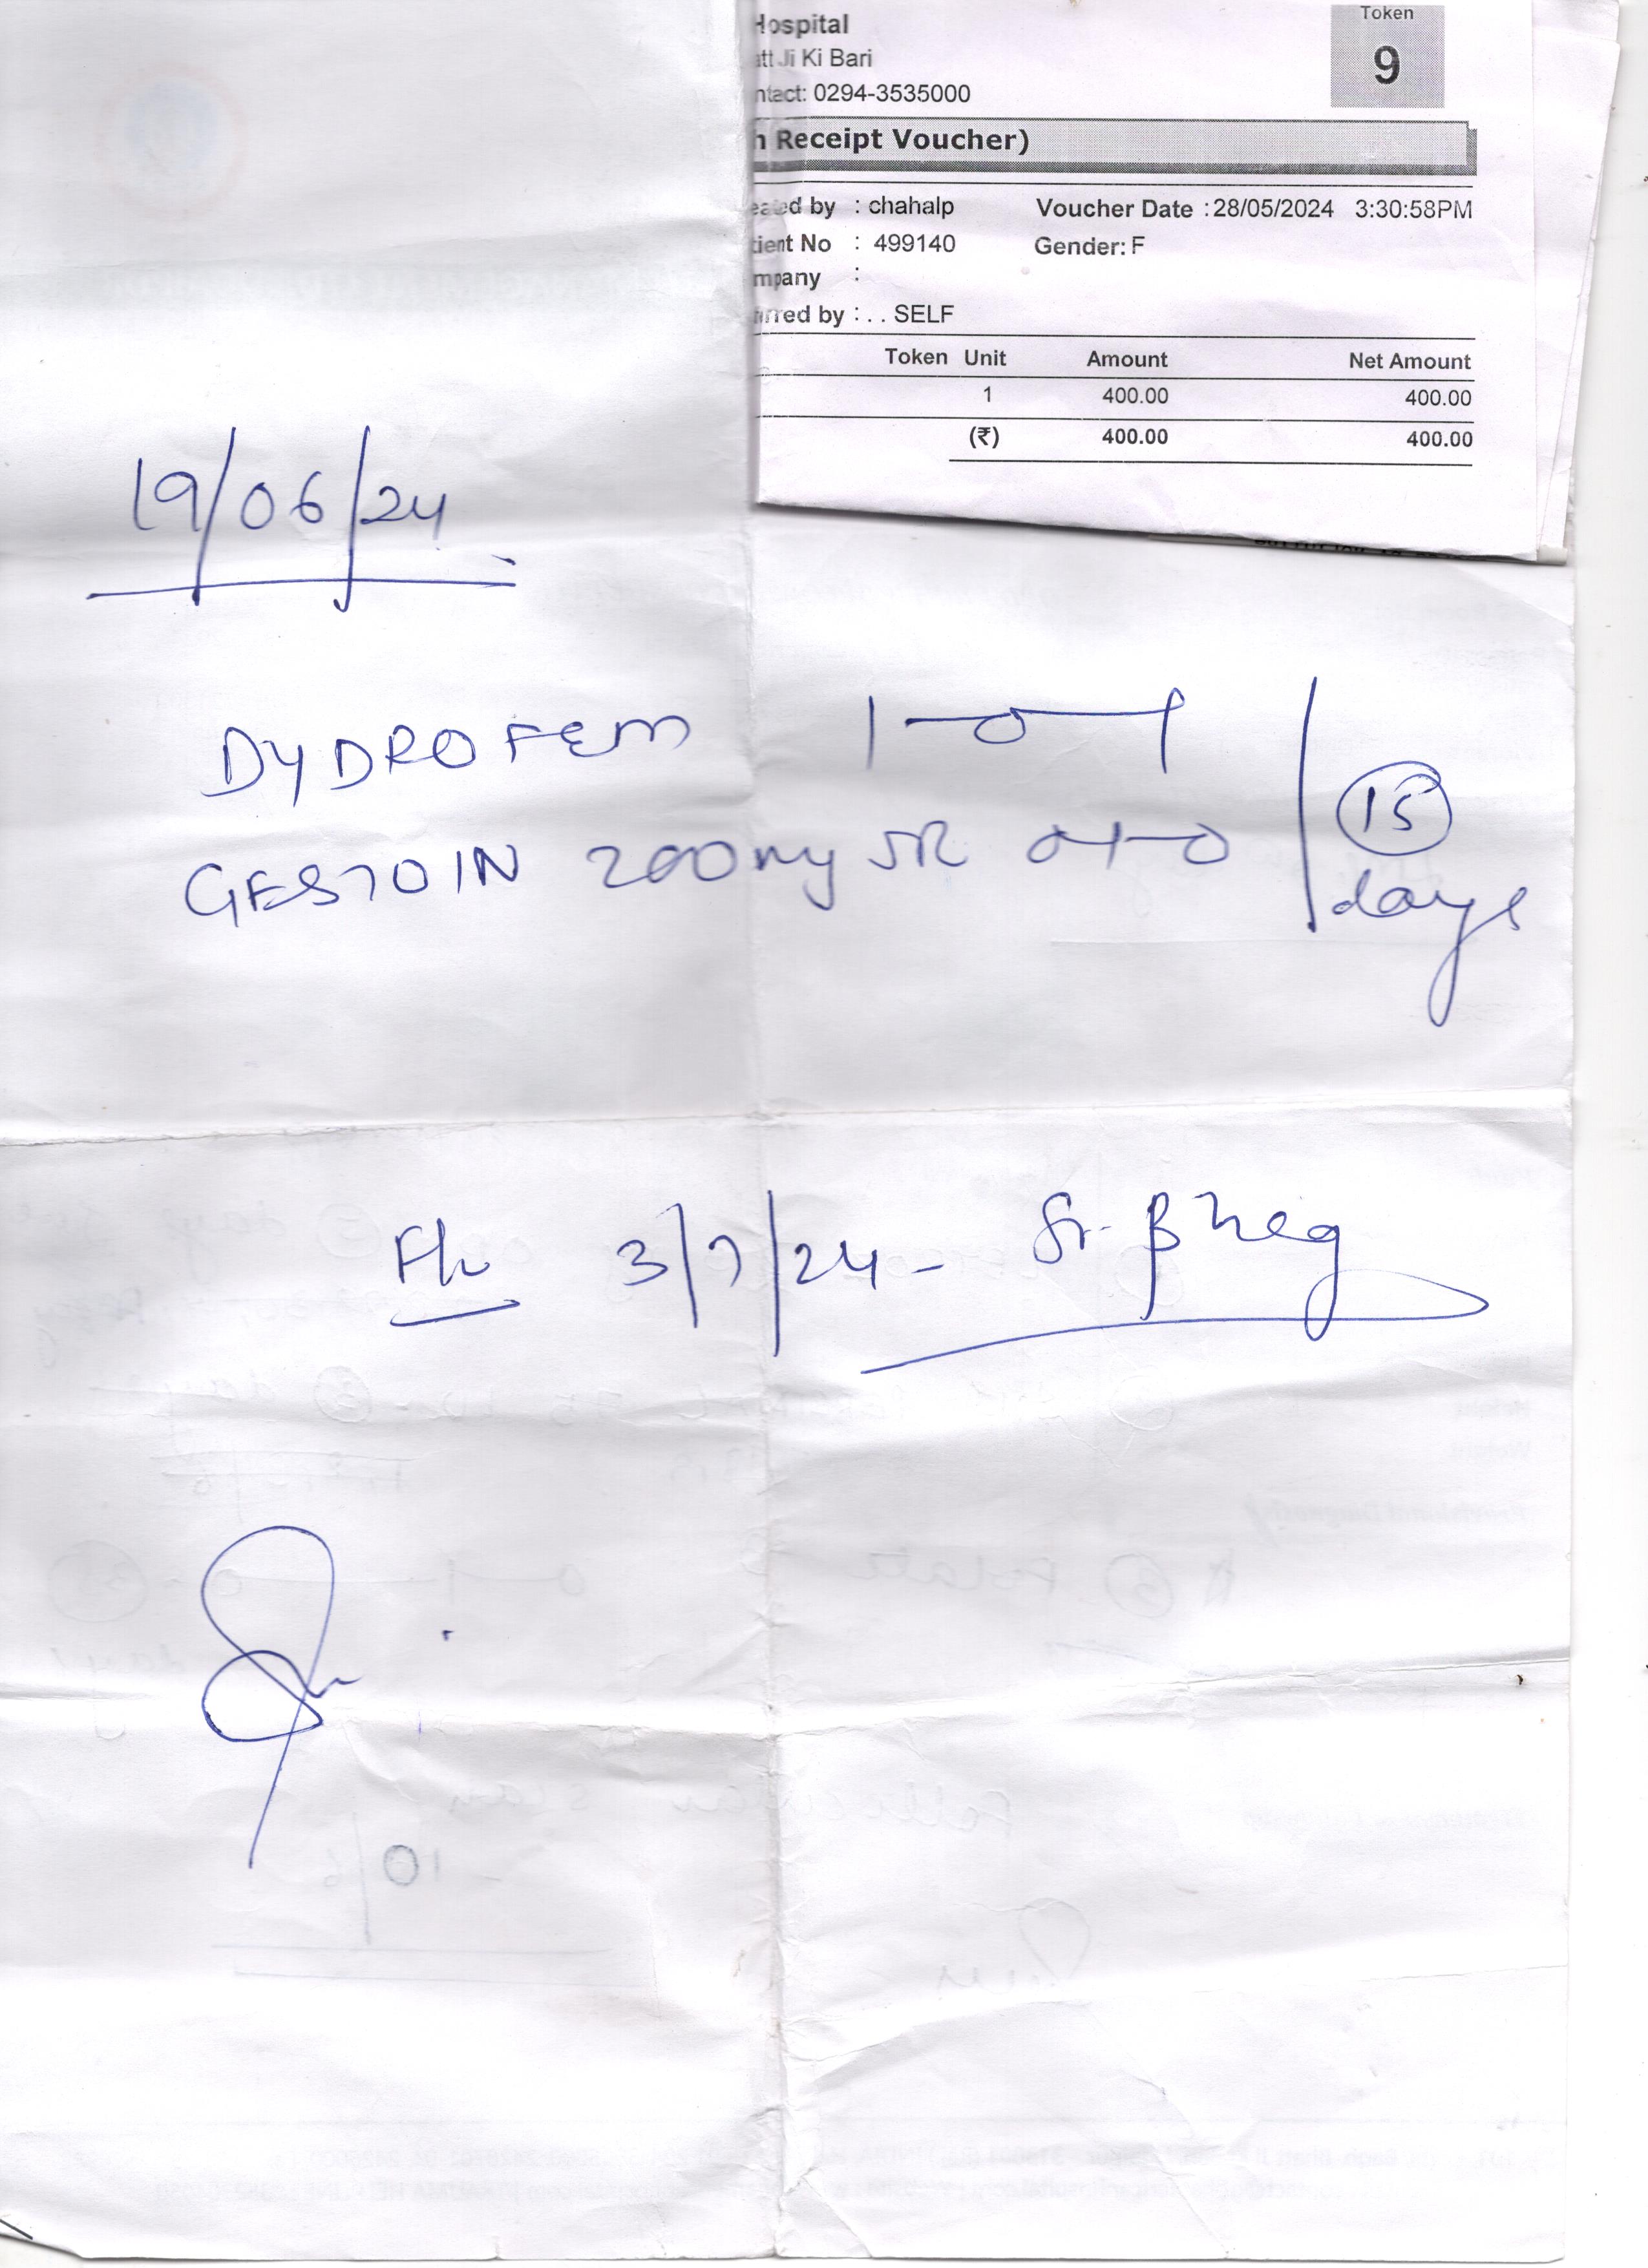 Hospital
att Ji Ki Bari
ntact: 0294-3535000
Token
9
h Receipt Voucher)
eated by : chahalp Voucher Date : 28/05/2024 3:30:58PM
tient No : 499140 Gender: F
mpany :
rred by : . . SELF
Token Unit Amount Net Amount
1 400.00 400.00
(₹) 400.00 400.00
19/06/24
DYDROFEM 1-0-1
GESTOIN 200mg SR 0-1-0
15 days
F/u 3/7/24 - Sr. β hcg